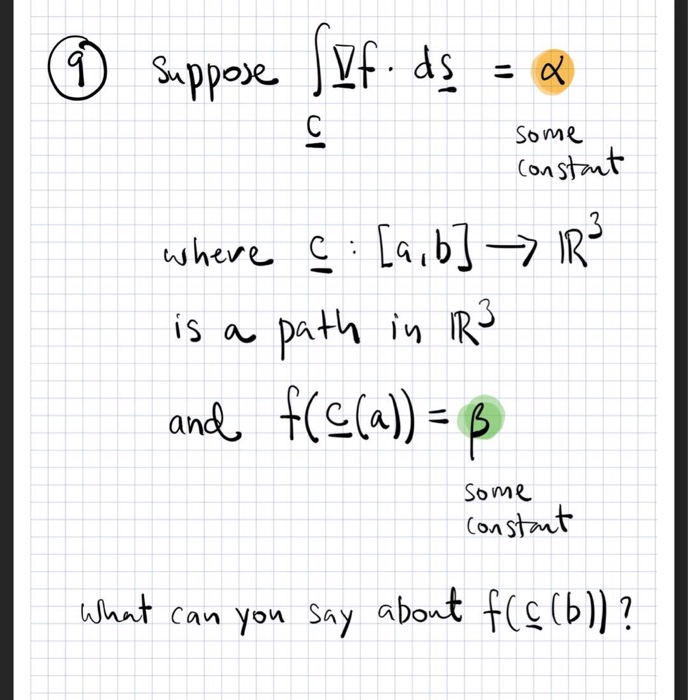 ⑨ Suppose ∫_c̲ ∇̲f · ds̲ = α
some
constant
where c̲ : [a,b] → ℝ³
is a path in ℝ³
and f(c̲(a)) = β
some
constant
What can you say about f(c̲(b))?